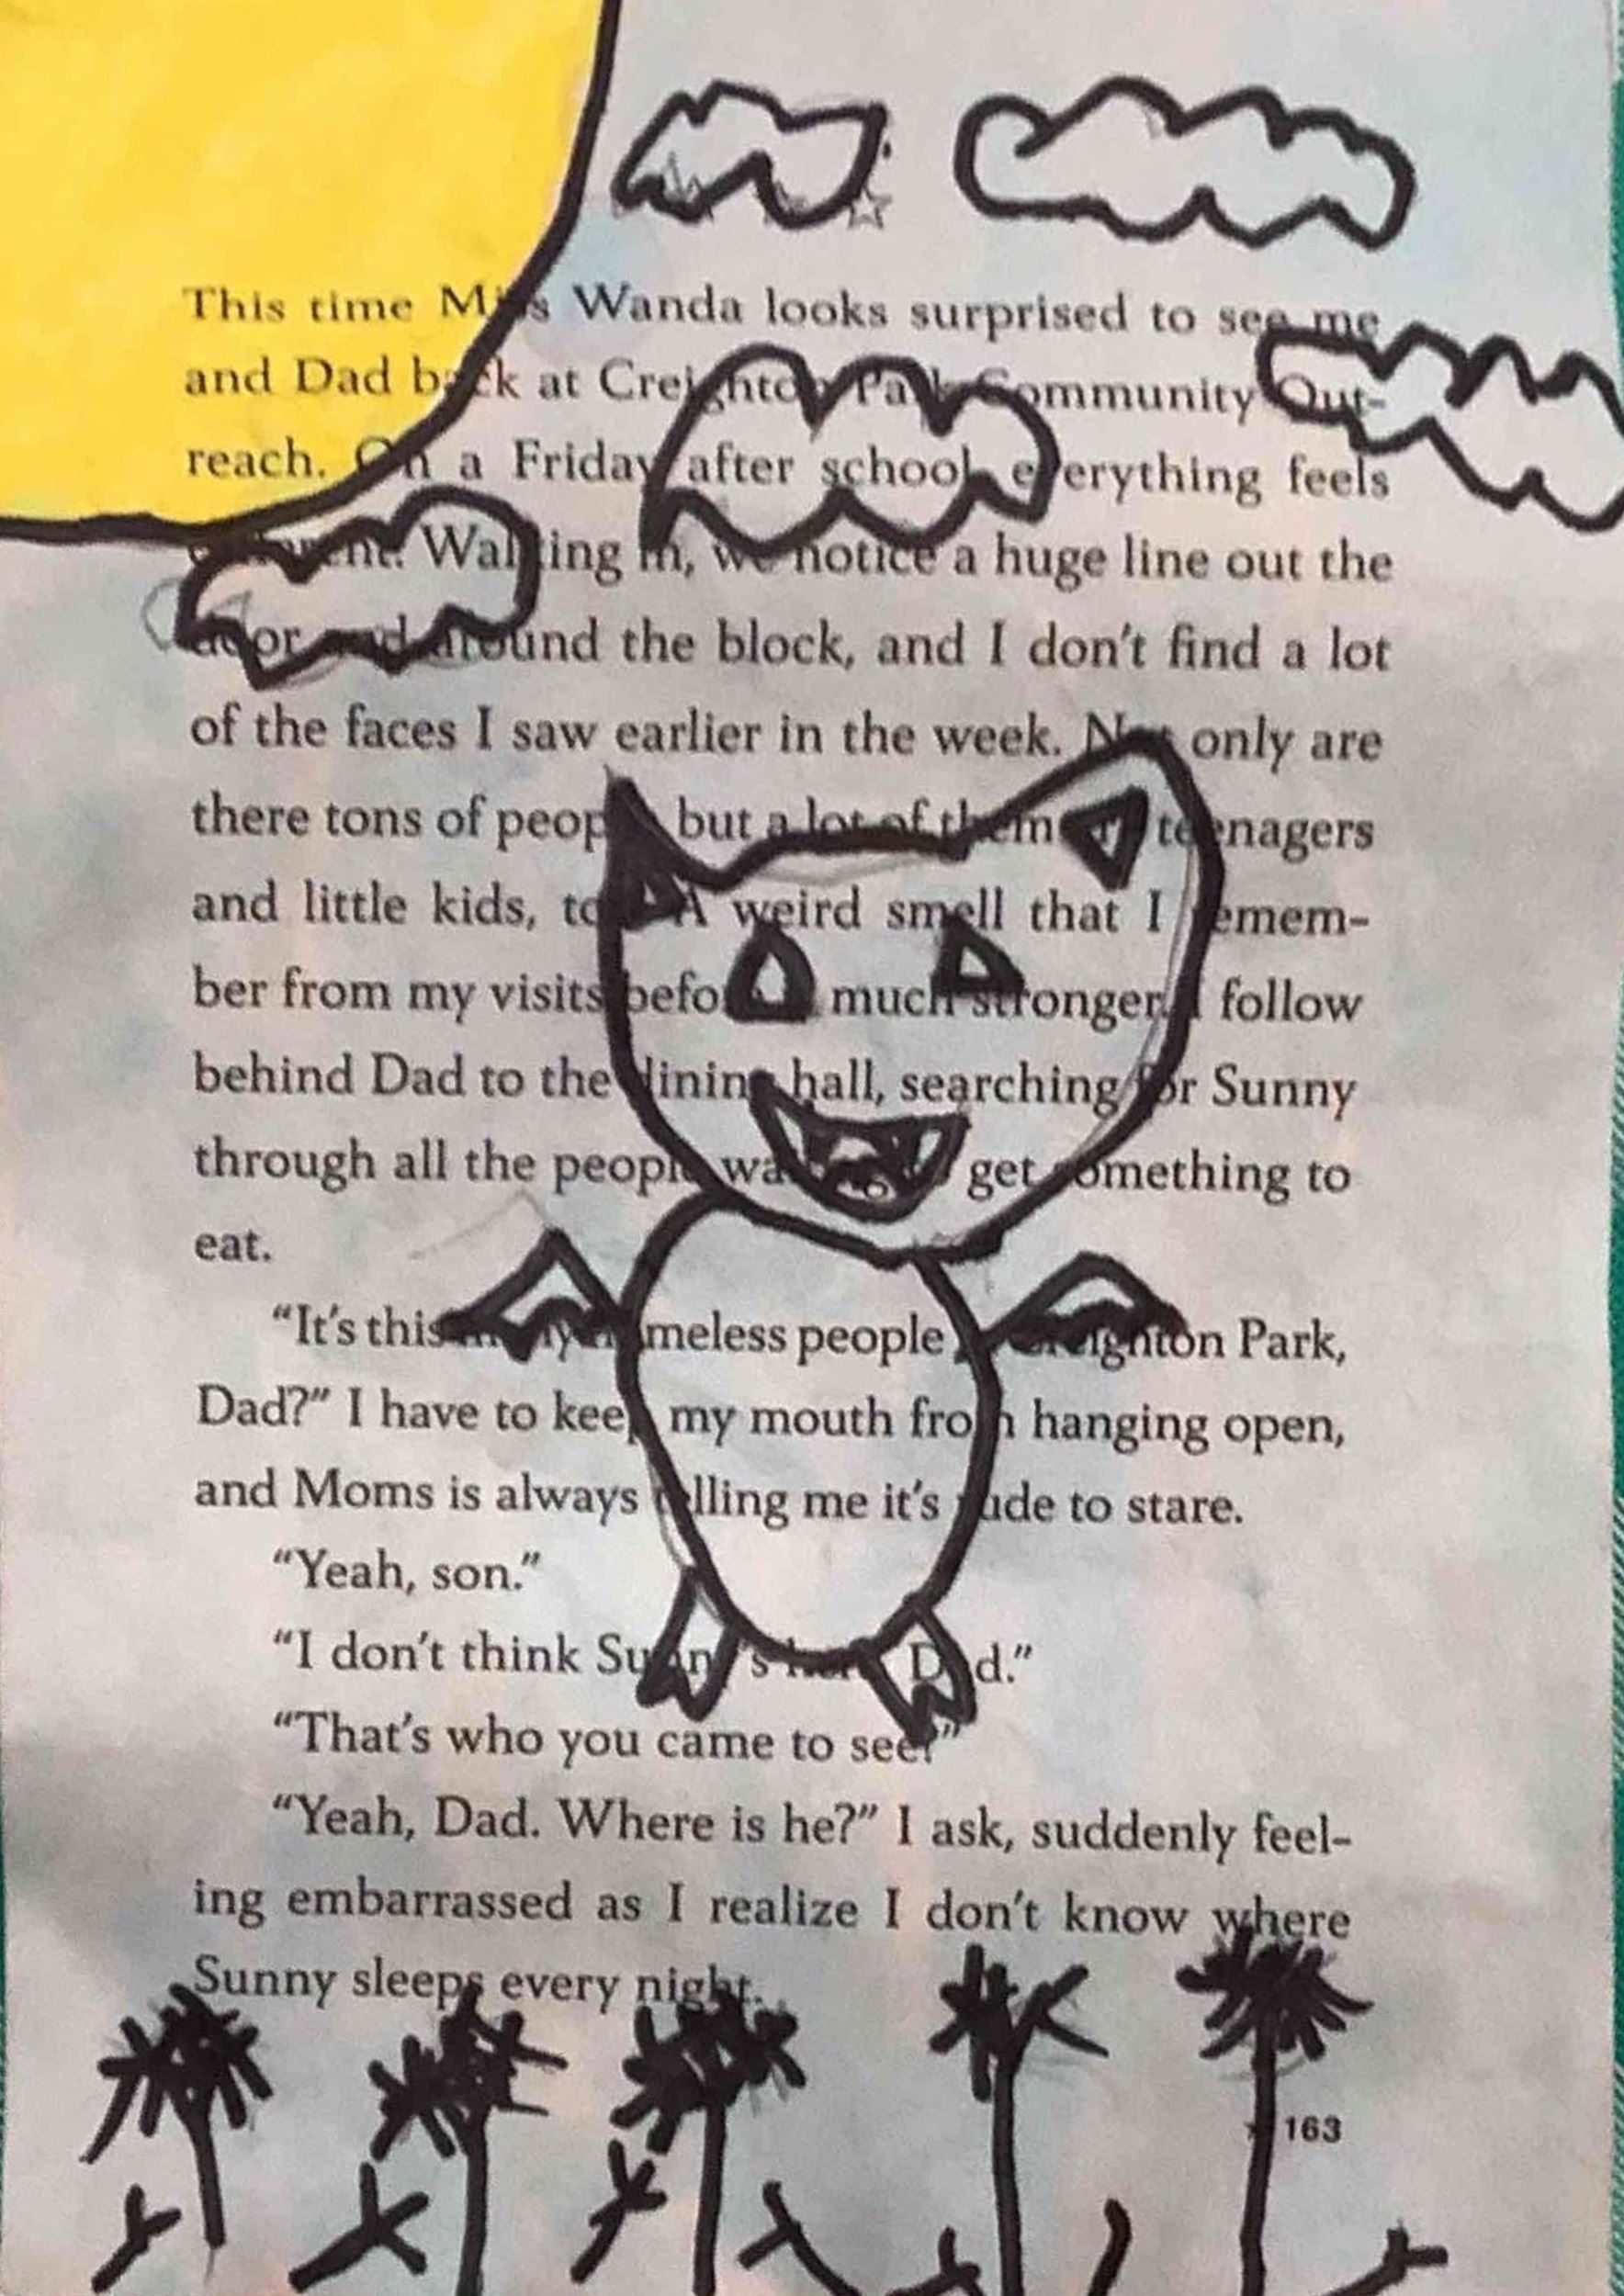 This time Miss Wanda looks surprised to see me
and Dad back at Creighton Park Community Out-
reach. On a Friday after school everything feels
different. Walking in, we notice a huge line out the
door and around the block, and I don't find a lot
of the faces I saw earlier in the week. Not only are
there tons of people but a lot of them teenagers
and little kids, too. A weird smell that I remem-
ber from my visits before much stronger. I follow
behind Dad to the dining hall, searching for Sunny
through all the people waiting to get something to
eat.
“It's this many homeless people Creighton Park,
Dad?” I have to keep my mouth from hanging open,
and Moms is always telling me it's rude to stare.
“Yeah, son.”
“I don't think Sunny's here, Dad.”
“That's who you came to see?”
“Yeah, Dad. Where is he?” I ask, suddenly feel-
ing embarrassed as I realize I don't know where
Sunny sleeps every night.
163